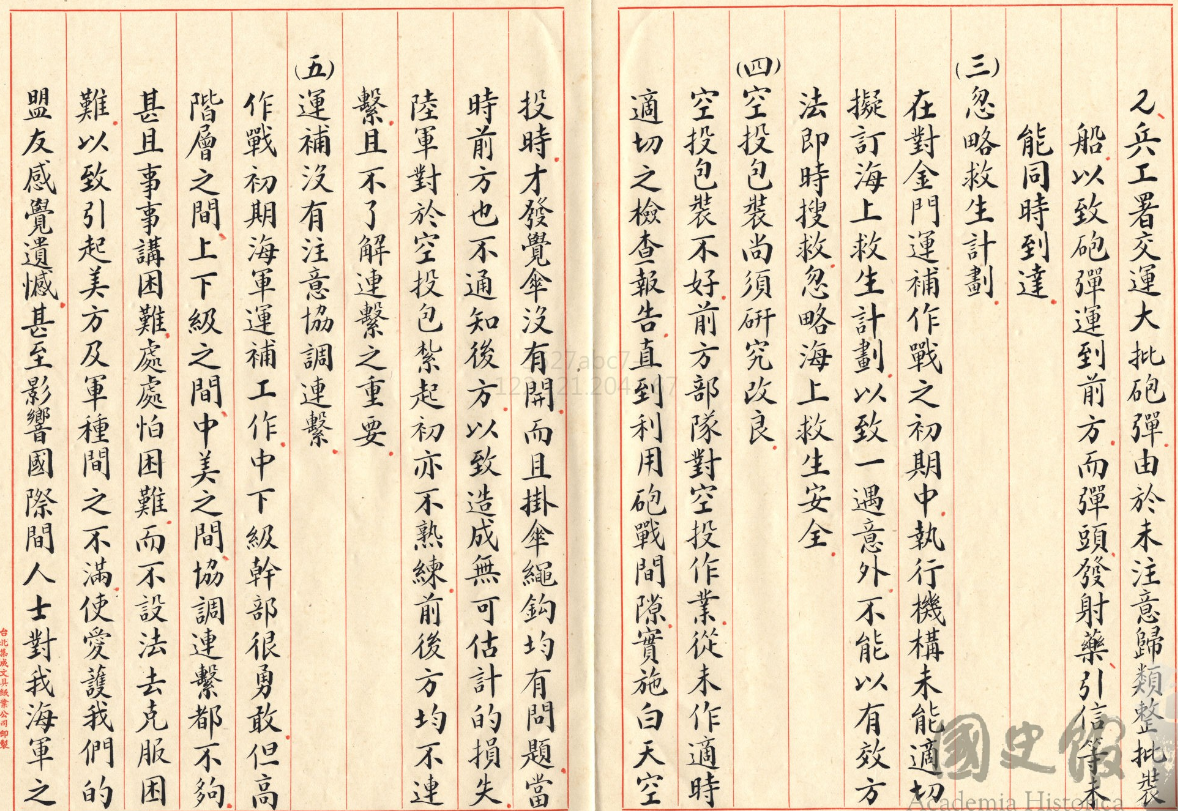 2、兵工署交運大批砲彈由於未注意歸類整批裝
船、以致砲彈運到前方、而彈頭、發射藥、引信等未
能同時到達。
(三)忽略救生計劃。
在對金門運補作戰之初期中、執行機構未能適切
擬訂海上救生計劃、以致一遇意外、不能以有效方
法即時搜救、忽略海上救生安全。
(四)空投包裝尚須研究改良。
空投包裝不好、前方部隊對空投作業、從未作適時
適切之檢查報告、直到利用砲戰間隙、實施白天空
投時、才發覺傘沒有開、而且掛傘繩鈎均有問題、當
時前方也不通知後方、以致造成無可估計的損失。
陸軍對於空投包紮起初亦不熟練、前後方均不連
繫、且不了解連繫之重要。
(五)運補沒有注意協調連繫。
作戰初期海軍運補工作、中下級幹部很勇敢、但高
階層之間、上下級之間、中美之間、協調連繫都不夠、
甚且事事講困難、處處怕困難、而不設法去克服困
難、以致引起美方及軍種間之不滿、使愛護我們的
盟友感覺遺憾、甚至影響國際間人士對我海軍之
台北集成文具紙業公司印製
國史館
Academia Historica